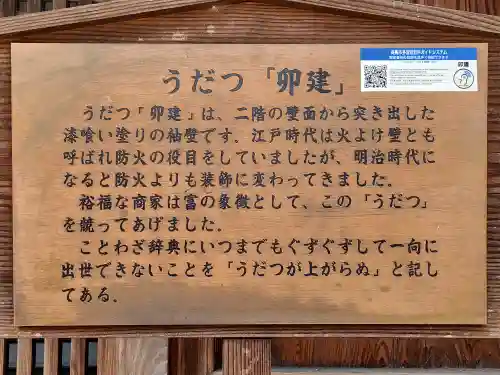 うだつ「卯建」
うだつ「卯建」は、二階の壁面から突き出した
漆喰い塗りの袖壁です．江戸時代は火よけ壁とも
呼ばれ防火の役目をしていましたが、明治時代に
なると防火よりも装飾に変わってきました．
裕福な商家は富の象徴として、この「うだつ」
を競ってあげました．
ことわざ辞典にいつまでもぐずぐずして一向に
出世できないことを「うだつが上がらぬ」と記し
てある．
卯建